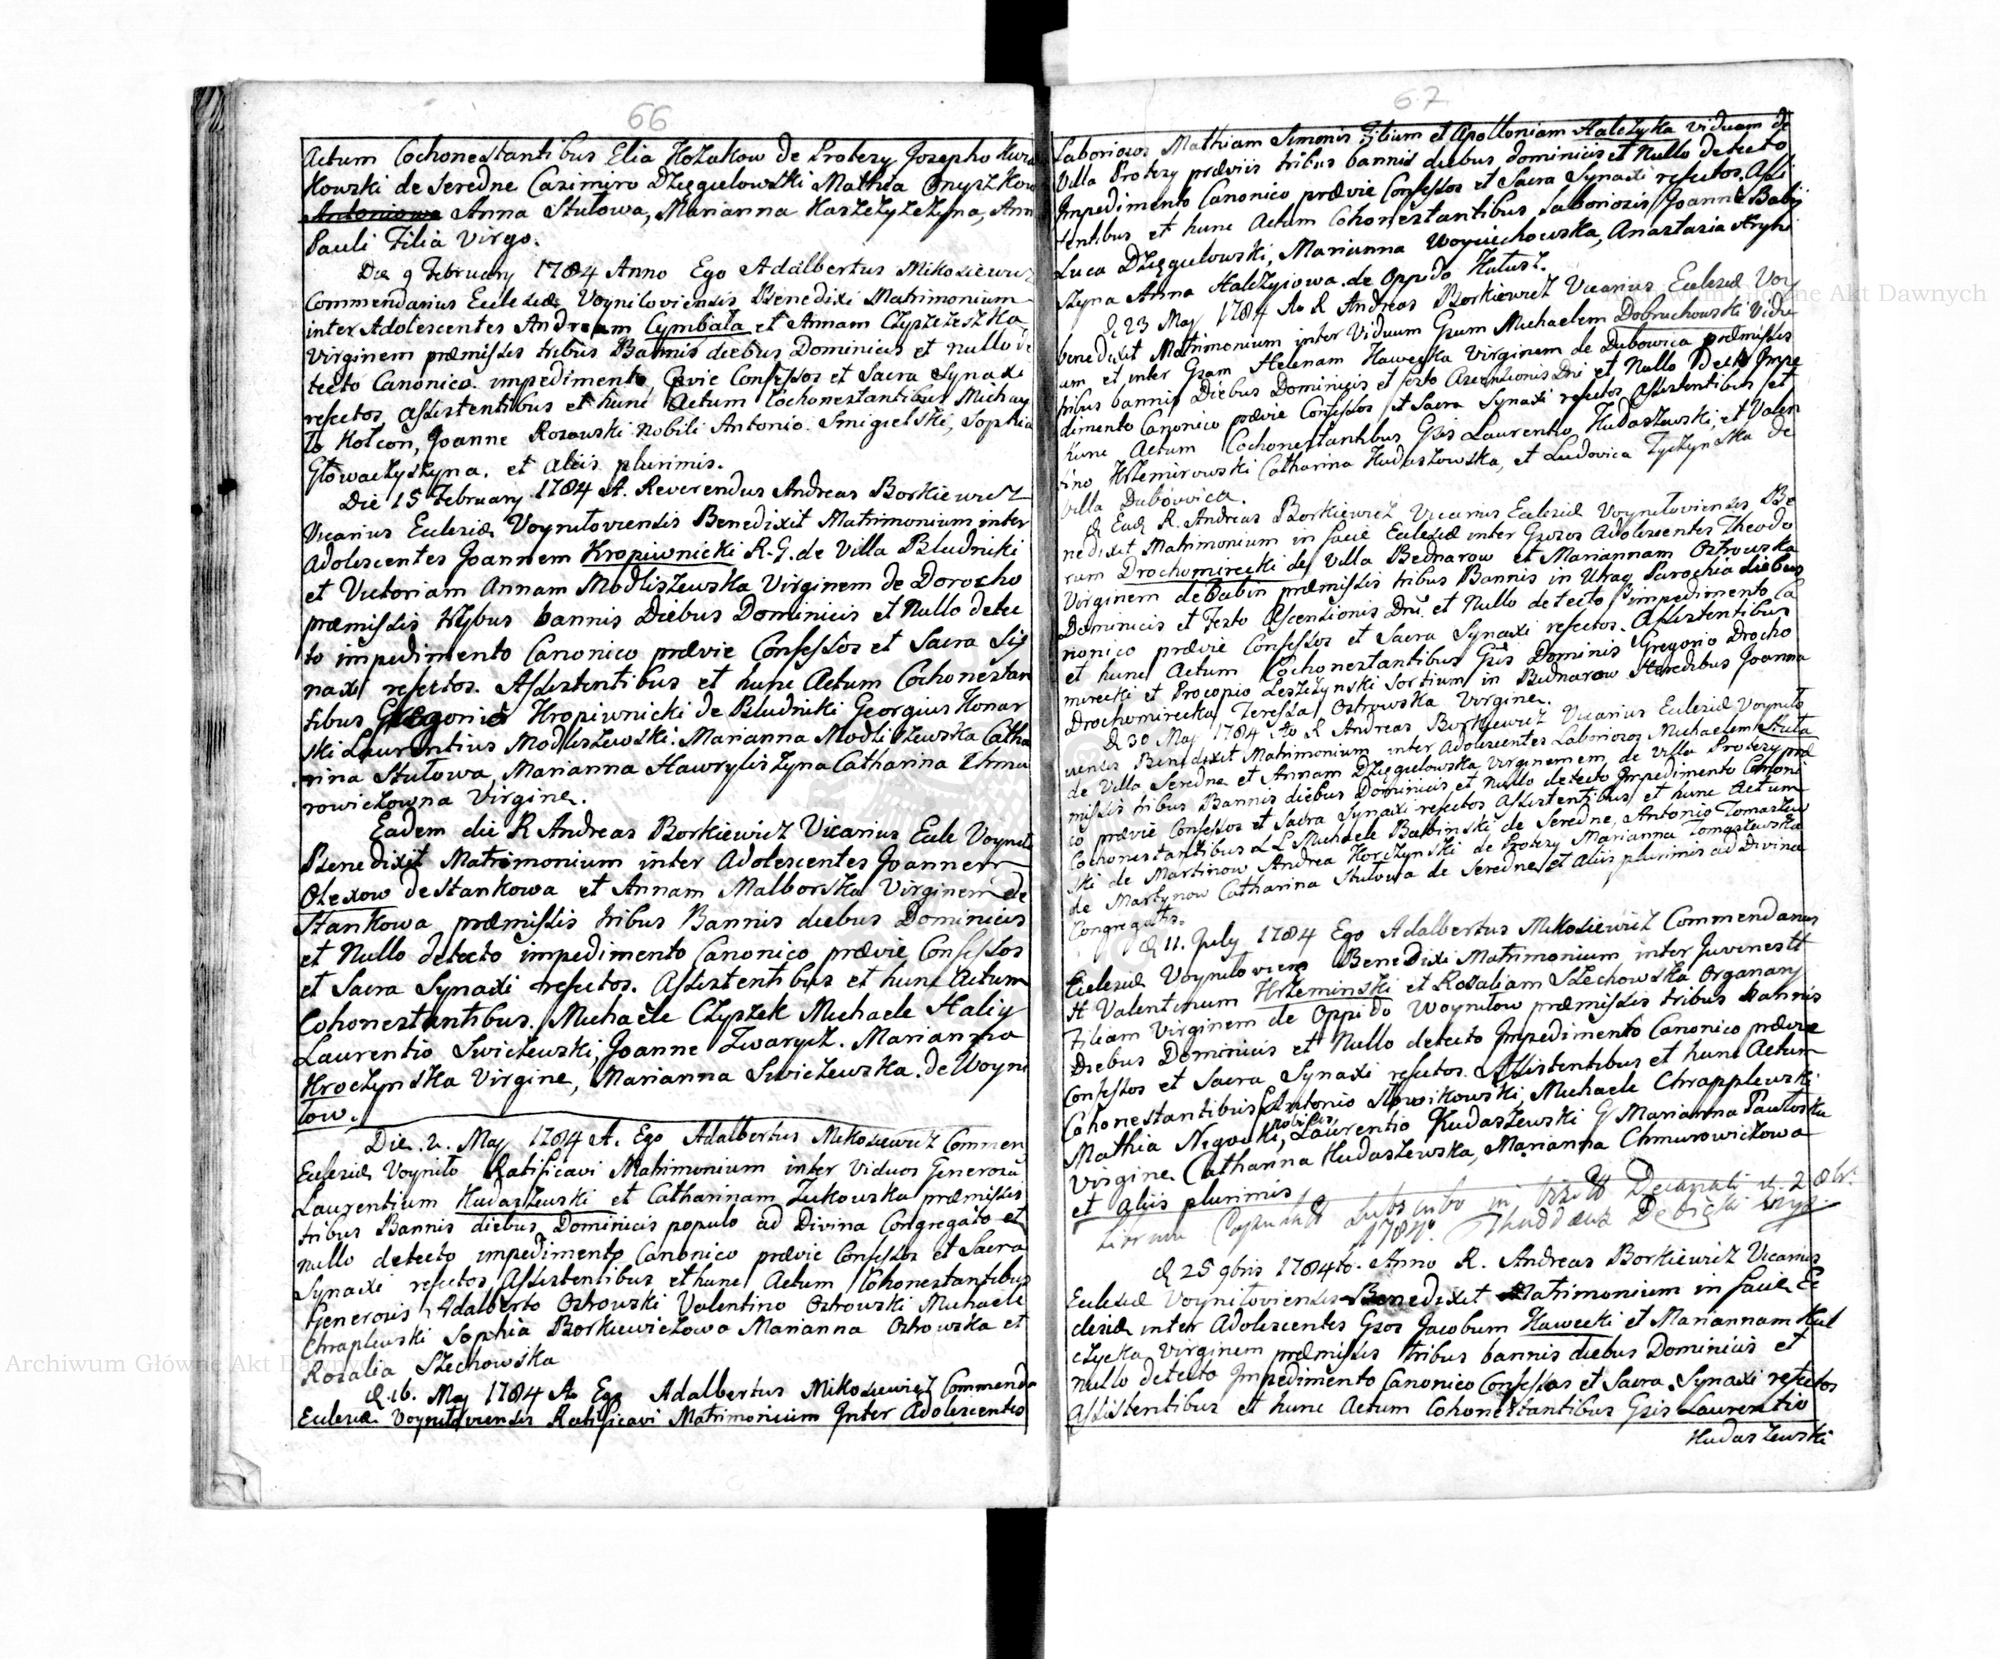 66
Actum Cochonestantibus Elia Kozakow de Protezy Josepho Kura
kowski de Seredne Casimiro Dzięgielowski Mathia Onyszkow
Antoniowa Anna Stulowa, Marianna Kaszczyszczyna, Ann
Pauli Filia Virgo.
Die 9 February 1784 Anno Ego Adalbertus Mikosiewicz
Commendarius Ecclesiæ Voyniloviensis Benedixi Matrimonium
inter Adolescentes Andream Cymbała et Annam
Virginem præmissis tribus Bannis diebus Dominicis et nullo de
tecto Canonico impedimento, Prævie Confessos et Sacra Synaxi
refectos, assistentibus et hunc Actum Cochonestantibus Michay
ło Holcon, Joanne Rosowski Nobili Antonio Smigielski, Sophia
Głowaczyszyna. et aliis plurimis.
Die 15 February 1784 A. Reverendus Andreas Borkiewicz
Vicarius Ecclesiæ Voyniloviensis Benedixit Matrimonium inter
Adolescentes Joannem Kropiwnicki R. G. de Villa Bludniki
et Victoriam Annam Modliszewska Virginem de Dorocho
præmissis trybus bannis Diebus Dominicis et Nullo detec
to impedimento Canonico prævie Confessos et Sacra Sij
naxi refectos. Assistentibus et hunc Actum Cochonestan
tibus Kropiwnicki de Bludniki Georgius Konar
ski Laurentius Modliszewski. Marianna Modliszewska Catha
rina Stulowa, Marianna Hawryliszyna Catharina Chmu
rowiczowna Virgine.
Eadem die R Andreas Borkiewicz Vicarius Ecclē Voynilo
Benedixit Matrimonium inter Adolescentes Joannem
Olexow de Stankowa et Annam Malborska Virginem de
Stankowa præmissis tribus Bannis diebus Dominicis
et Nullo detecto impedimento Canonico prævie Confessos
et Sacra Synaxi refectos. Assistentibus et hunc Actum
Cohonestantibus. Michaele Czyszek Michaele Haliy
Laurentio Swiczewski, Joanne Zwarycz. Marianna
Kroczynska Virgine, Marianna Swiczewska. de Woyni
low.
Die 2. May 1784 A. Ego Adalbertus Mikosiewicz Commen
Ecclesiæ Voynilo Ratificavi Matrimonium inter Viduos Generosū
Laurentium Kudaszewski et Catharinam Zukowska præmissis
tribus Bannis diebus Dominicis populo ad Divina Congregato et
nullo detecto impedimento Canonico prævie Confessos et Sacra
Synaxi refectos, Assistentibus et hunc Actum Cohonestantibus
Generosis Adalberto Ostrowski Valentino Ostrowski Michaele
Chraplewski Sophia Borkiewiczowa Marianna Ostrowska et
Rosalia Szechowska
d. 16. May 1784 Ao Ego Adalbertus Mikosiewicz Commenda
Ecclesiæ Voyniloviensis Ratificavi Matrimonium Inter Adolescentes
67
Laboriosos Mathiam Simonis Filium et Apolloniam Halczyka viduam de
Villa Protezy præviis tribus bannis diebus dominicis et Nullo detecto
Impedimento Canonico prævie Confessos et Sacra Synaxi refectos. Assi
tentibus et hunc Actum Cohonestantibus Laboriosis Joanne Babij
Luca Dzięgielowski, Marianna Woyciechowska, Anastasia Hryhi
szyna Anna Halczyiowa de Oppido Kalusz.
d 23 May 1784 Ao R Andreas Borkiewicz Vicarius Ecclesiæ Voy
benedixit Matrimonium inter Viduum Gsum Michaelem Dobruchowski Vidu
um et inter Gsam Helenam Hawecka Virginem de Dubowica præmissis
tribus bannis Diebus Dominicis et festo Ascentionis Dni et Nullo Detecto Impe
dimento Canonico prævie Confessos et Sacra Synaxi refectos Assistentibus et
hunc Actum Cochonestantibus Gsis Laurentio Kudaszewski, et Valen
tino Krzemirowski Catharina Kudaszowska, et Ludovica Tyczynska de
villa Dubowica.
d Ead R. Andreas Borkiewicz Vicarius Ecclesiæ Voyniloviensis Be
nedixit Matrimonium in facie Ecclesiæ inter Gsosos Adolescentes Theodo
rum Drochomirecki de Villa Bednarow et Mariannam Ostrowska
Virginem de Babin præmissis tribus Bannis in Utraq Parochia diebus
Dominicis et Festo Ascentionis Dni. et Nullo detecto impedimento Ca
nonico prævie Confessos et Sacra Synaxi refectos. Assistentibus
et hunc Actum Cochonestantibus Gsis Dominis Gregorio Drocho
mirecki et Procopio Leszczynski Sortium in Bednarow Heredibus Joanna
Drochomirecka Teressa Ostrowska Virgine.
d 30 May 1784 Ao R Andreas Borkiewicz Vicarius Ecclesiæ Voynilo
viensis Benedixit Matrimonium inter Adolescentes Laboriosos Michaelem Stula
de Villa Seredne et Annam Dzięgielowska Virginemem de villa Protezy præ
missis tribus Bannis diebus Dominicis et Nullo detecto Impedimento Canoni
co prævie Confessos et Sacra Synaxi refectos Assistentibus et hunc Actum
Cochonestantibus L L Michaele Babinski de Seredne, Antonio Tomaszew
ski de Martinow Andrea Korczynski de Protezy Marianna Tomaszewska
de Martynow Catharina Stulowa de Seredne et aliis plurimis ad Divina
Congregatis.
d 11. July 1784 Ego Adalbertus Mikosiewicz Commendarius
Ecclesiæ Voyniloviens Benedixi Matrimonium inter Juvenes H
H Valentinum Krzeminski et Rosaliam Szechowska Organary
Filiam Virginem de Oppido Woynilow præmissis tribus Bannis
Diebus Dominicis et Nullo detecto Impedimento Canonico prævie
Confessos et Sacra Synaxi refectos. Assistentibus et hunc Actum
Cohonestantibus Antonio Slowikowski, Michaele Chrapplewski
Mathia Nigocki, Nobilibus Laurentio Kudaszewski G Marianna Pawloska
Virgine Catharina Kudaszewska, Marianna Chmurowiczowa
et aliis plurimis
1784.
d 25 9bris 1784to. Anno R. Andreas Borkiewicz Vicarius
Ecclesiæ Voyniloviensis Benedixit Matrimonium in facie Ec
clesiæ inter Adolescentes Gsos Jacobum Hawecki et Mariannam Kul
czycka Virginem præmissis tribus bannis diebus Dominicis et
Nullo detecto Impedimento Canonico Confessos et Sacra Synaxi refectos
Assistentibus et hunc Actum Cohonestantibus Gsis Laurentio
Kudaszewski
Archiwum Główne Akt Dawnych
Archiwum Główne Akt Dawnych